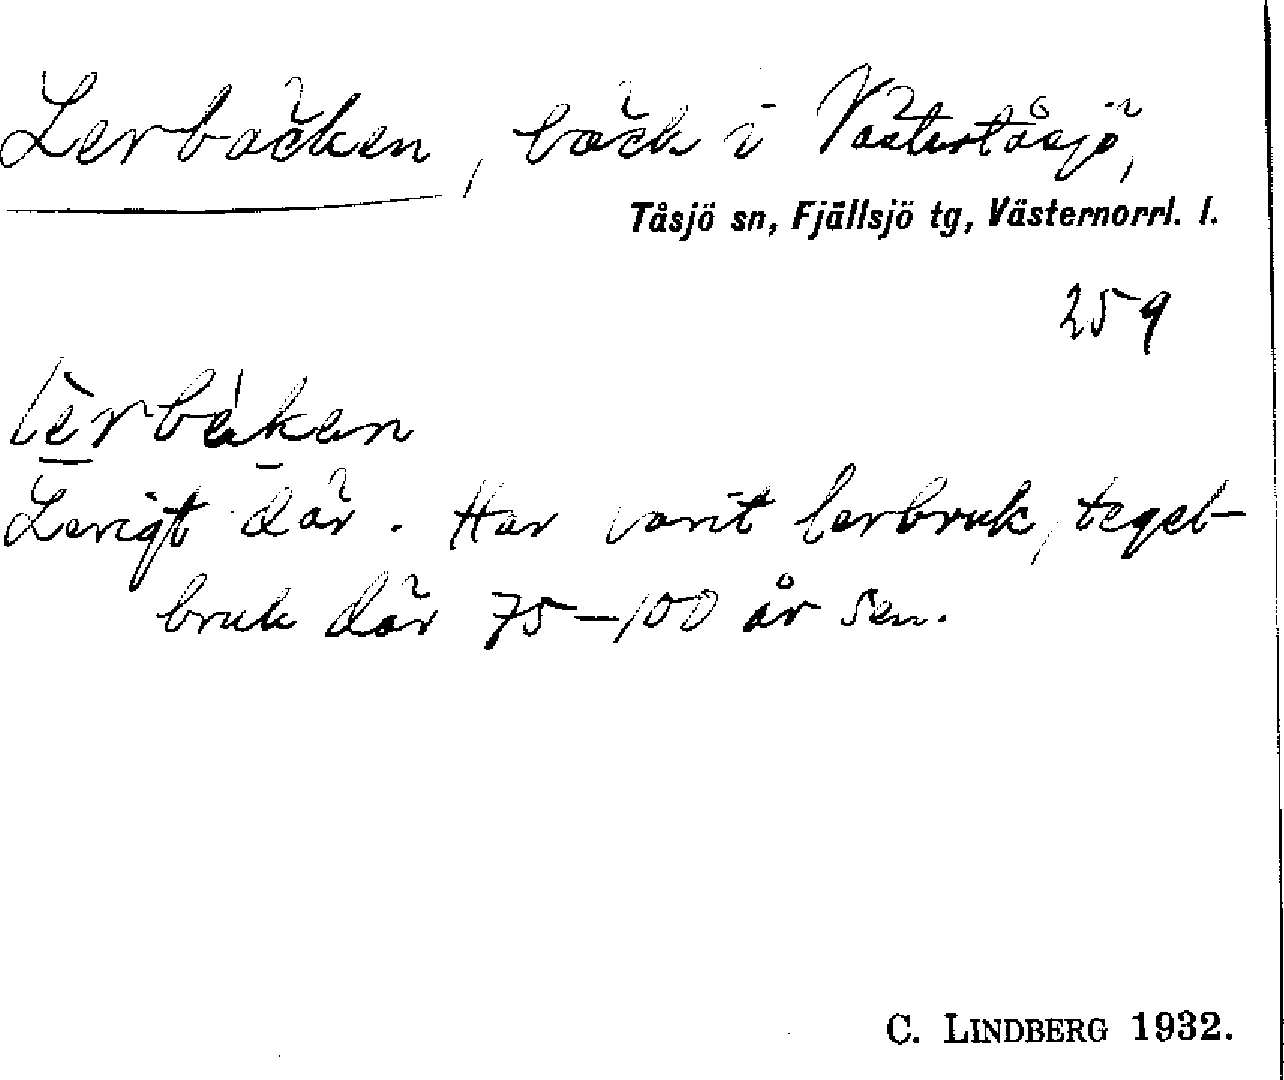 Lerbäcken, bäck i Västertåsjö,
Tåsjö sn, Fjällsjö tg, Västernorrl. l.
259
lèrbèken
Lerigt där. Har varit lerbruk, tegel-
bruk där 75-100 år sen.
C. LINDBERG 1932.